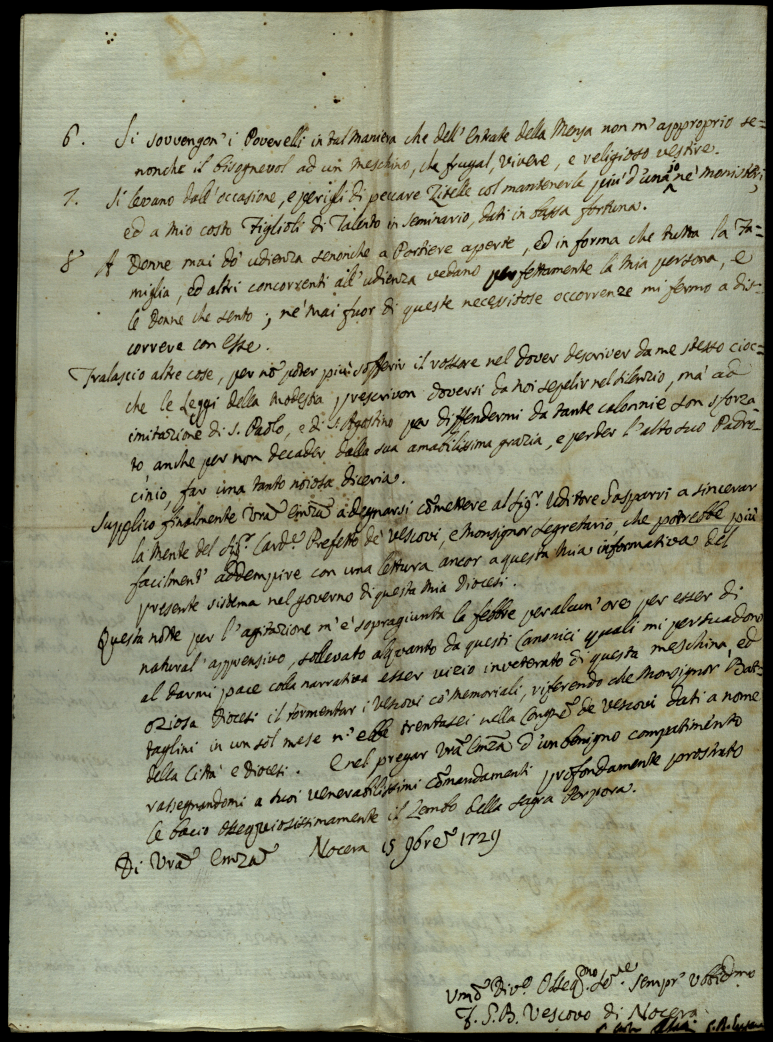 6. Si sovvengon' i Poverelli in tal maniera che dell'Entrate della Mensa non m'approprio se=
nonche il bisognevol ad un meschino, che frugal, vivere, e religioso vestire.
7. Si levano dall'occasione, e perigli di peccare Zitelle col mantenerle più d'una ne' Monisteri,
ed a mio costo Figlioli di Talento in Seminario, dati in bassa fortuna.
8 A Donne mai dò udienza senonche a Portiere aperte, ed in forma che tutta la Fa=
miglia, ed altri concorrenti all'udienza vedano perfettamente la mia persona, e
le Donne che sento; ne' mai fuor di queste necessitose occorrenze mi fermo a dis=
correre con esse.
Tralascio altre cose, per nõ poter più sofferir il rossore nel dover descriver da me stesso cioc=
che le Leggi della modestia prescrivon doversi da noi sepelir nel silenzio, mà ad
imitazione di S. Paolo, e di S. Agostino per diffendermi da tante calonnie son sforza=
to anche per non decader dalla sua amabilissima grazia, e perder l'alto suo Padro=
cinio, far una tanto noiosa diceria.
Supplico finalmente Vrã Emzã a degnarsi cõmettere al Sigr. Uditore Gasparri a sincerar
la mente del Sigr. Carde. Prefetto de' Vescovi, e Monsignor Segretario, che potrebbe più
facilment' addempire con una lettura ancor a questa mia informativa del
presente sistema nel governo di questa mia Diocesi.
Questa notte per l'agitazione m'è sopragiunta la febbre per alcun'ore per esser di
natural' apprensivo, sollevato alquanto da questi Canonici quali mi persuadono
al darmi pace colla narrativa esser vizio inveterato di questa meschina, ed
oziosa Diocesi il tormentar i Vescovi cõ Memoriali, riferendo che Monsignor Bat=
taglini in un sol mese n'ebbe trentasei nella Congne de Vescovi dati a nome
della Città e Diocesi. E nel pregar Vrã Emzã d'un benigno compatimento
rassegnandomi a suoi venerabilissimi cõmandamenti profondamente prostrato
le bacio ossequiosissimamente il Lembo della Sagra Porpora.
Di Vrã Emzã Nocera 15 9bre 1729
Umo Divo Ossequmo Serre sempr' Obbedmo
F. S. B. Vescovo di Nocera